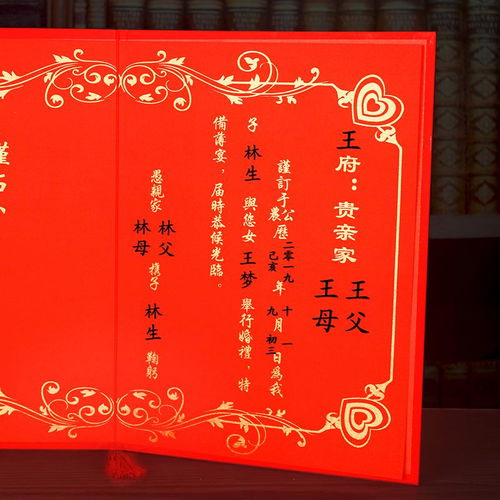 王府：贵亲家
王父
王母
謹訂于公歷二零一九年十月一日為我
農歷己亥九初三
子林生與您女王梦舉行婚禮，特
備薄宴，届時恭候光臨。
愚親家林父林母携子林生鞠躬